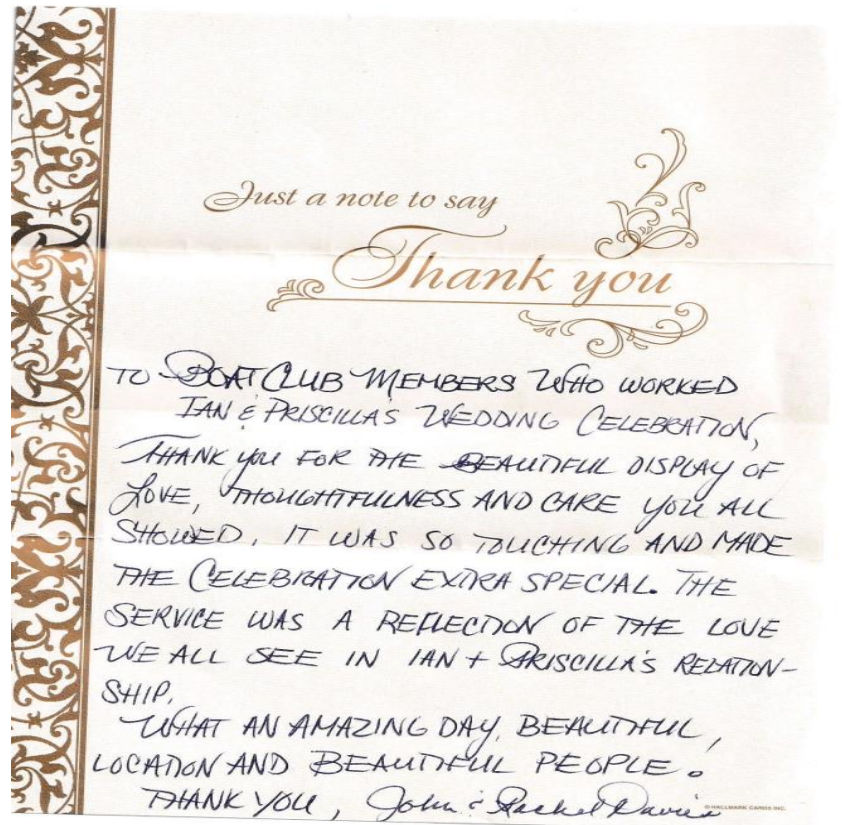 Just a note to say
Thank you
TO BOAT CLUB MEMBERS WHO WORKED
IAN & PRISCILLA'S WEDDING CELEBRATION,
THANK YOU FOR THE BEAUTIFUL DISPLAY OF
LOVE, THOUGHTFULNESS AND CARE YOU ALL
SHOWED. IT WAS SO TOUCHING AND MADE
THE CELEBRATION EXTRA SPECIAL. THE
SERVICE WAS A REFLECTION OF THE LOVE
WE ALL SEE IN IAN + PRISCILLA'S RELATION-
SHIP.
WHAT AN AMAZING DAY, BEAUTIFUL,
LOCATION AND BEAUTIFUL PEOPLE.
THANK YOU, John & Rachel Davies
© HALLMARK CARDS INC.